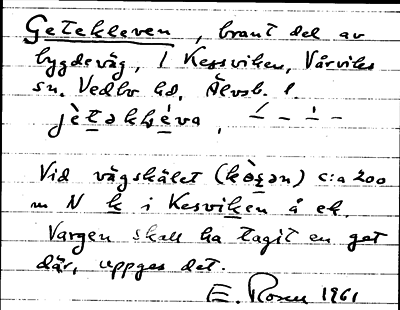 Getekleven, brant del av
bygdeväg, i Kessviken, Vårviks
sn. Vedbo hd, Älvsb. l.
jètəkḷèva,
Vid vägskälet (kòṣən) c:a 200
m N k i Kesviken å ek.
Vargen skall ha tagit en get
där, uppges det.
E. Rosen 1961